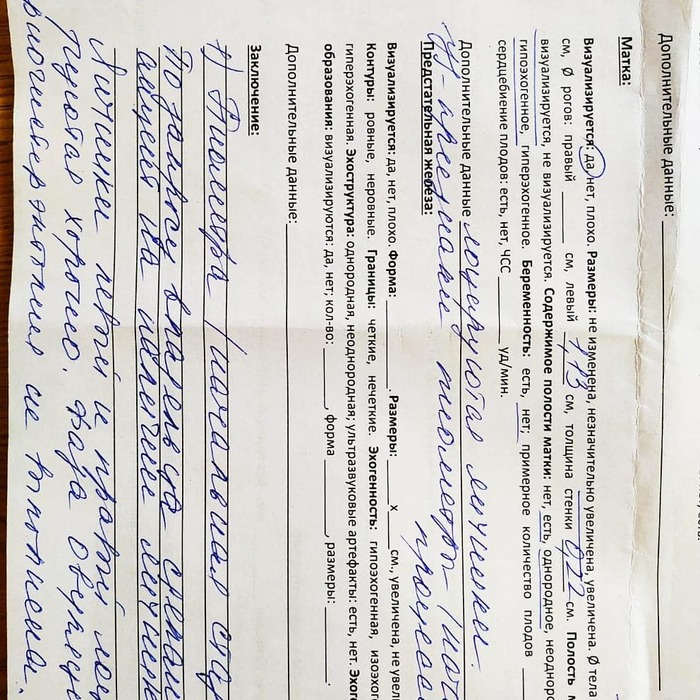 Дополнительные данные:
Матка:
Визуализируется: да, нет, плохо. Размеры: не изменена, незначительно увеличена, увеличена. Ø тела
см, Ø рогов: правый ____ см, левый 1,13 см, толщина стенки 0,22 см. Полость м
визуализируется, не визуализируется. Содержимое полости матки: нет, есть, однородное, неодноро
гипоэхогенное, гиперэхогенное. Беременность: есть, нет; примерное количество плодов
сердцебиение плодов: есть, нет, ЧСС ____ уд/мин.
Дополнительные данные лоцируются яичники.
УЗ-признаки пиометры (нач
процесс
Предстательная железа:
Визуализируется: да, нет, плохо. Форма: ____. Размеры: ____ х ____ см., увеличена, не увел
Контуры: ровные, неровные. Границы: четкие, нечеткие. Эхогенность: гипоэхогенная, изоэхоген
гиперэхогенная. Эхоструктура: однородная, неоднородная; ультразвуковые артефакты: есть, нет. Эхоге
образования: визуализируются: да, нет; кол-во: ____, форма ____, размеры: ____.
Дополнительные данные:
Заключение:
1) Пиометра (начальная стад
По запросу владельца сделан
наличие яичнико
Яичники левый и правый лоц
хорошо.
не выявлены.